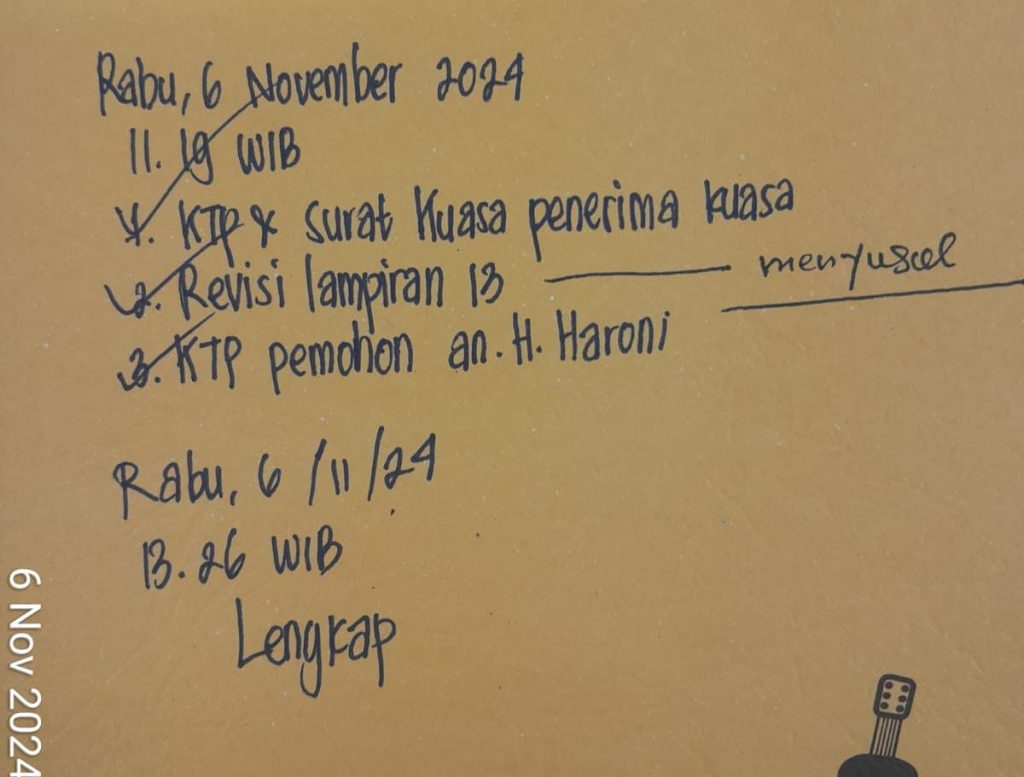 Rabu, 6 November 2024
11.19 WIB
1. KTP & Surat Kuasa penerima kuasa
2. Revisi lampiran 13 — menyusul
3. KTP pemohon an. H. Haroni
Rabu, 6/11/24
13.26 WIB
Lengkap
6 Nov 2024